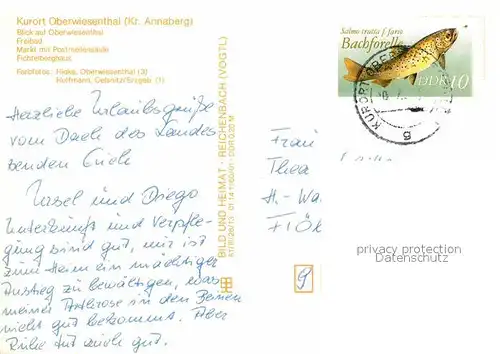 Kurort Oberwiesenthal (Kr. Annaberg)
Blick auf Oberwiesenthal
Freibad
Markt mit Postmeilensäule
Fichtelberghaus
Farbfotos: Oberwiesenthal (3)
Hoffmann, (1)
Herzliche Urlaubsgrüße
vom Dach des Landes
senden Euch
Ursel und Diego
Unterkunft und Verpfle-
gung sind gut, mir ist
zum Heim ein mächtiger
Anstieg zu bewältigen, was
meiner Arthrose in den Beinen
nicht gut bekommt. Aber
Ruhe tut auch gut.
BILD UND HEIMAT REICHENBACH (VOGTL)
Salmo trutta f. fario
Bachforelle
DDR 10
KURORT OBER
Frau
Thea
H.-Wa
Flöh
privacy protection
Datenschutz